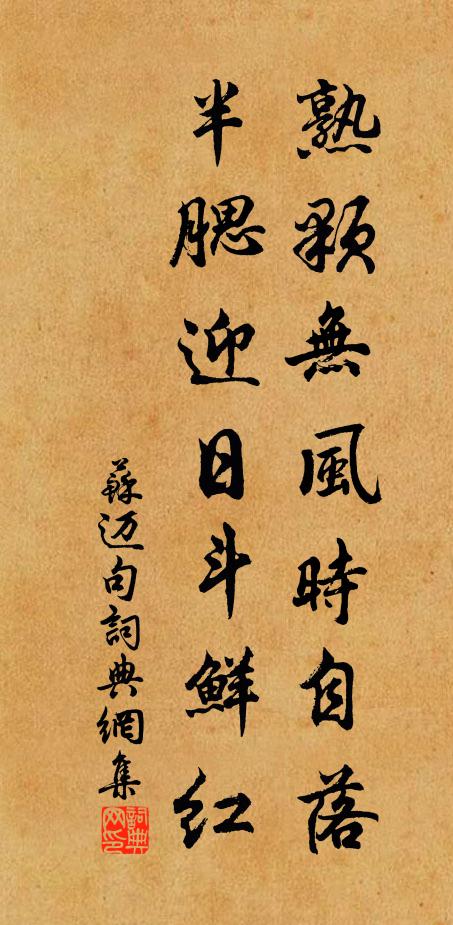 熟顆無風時自落
半腮迎日斗鮮紅
蘇迈句詞典網集
詞典网印